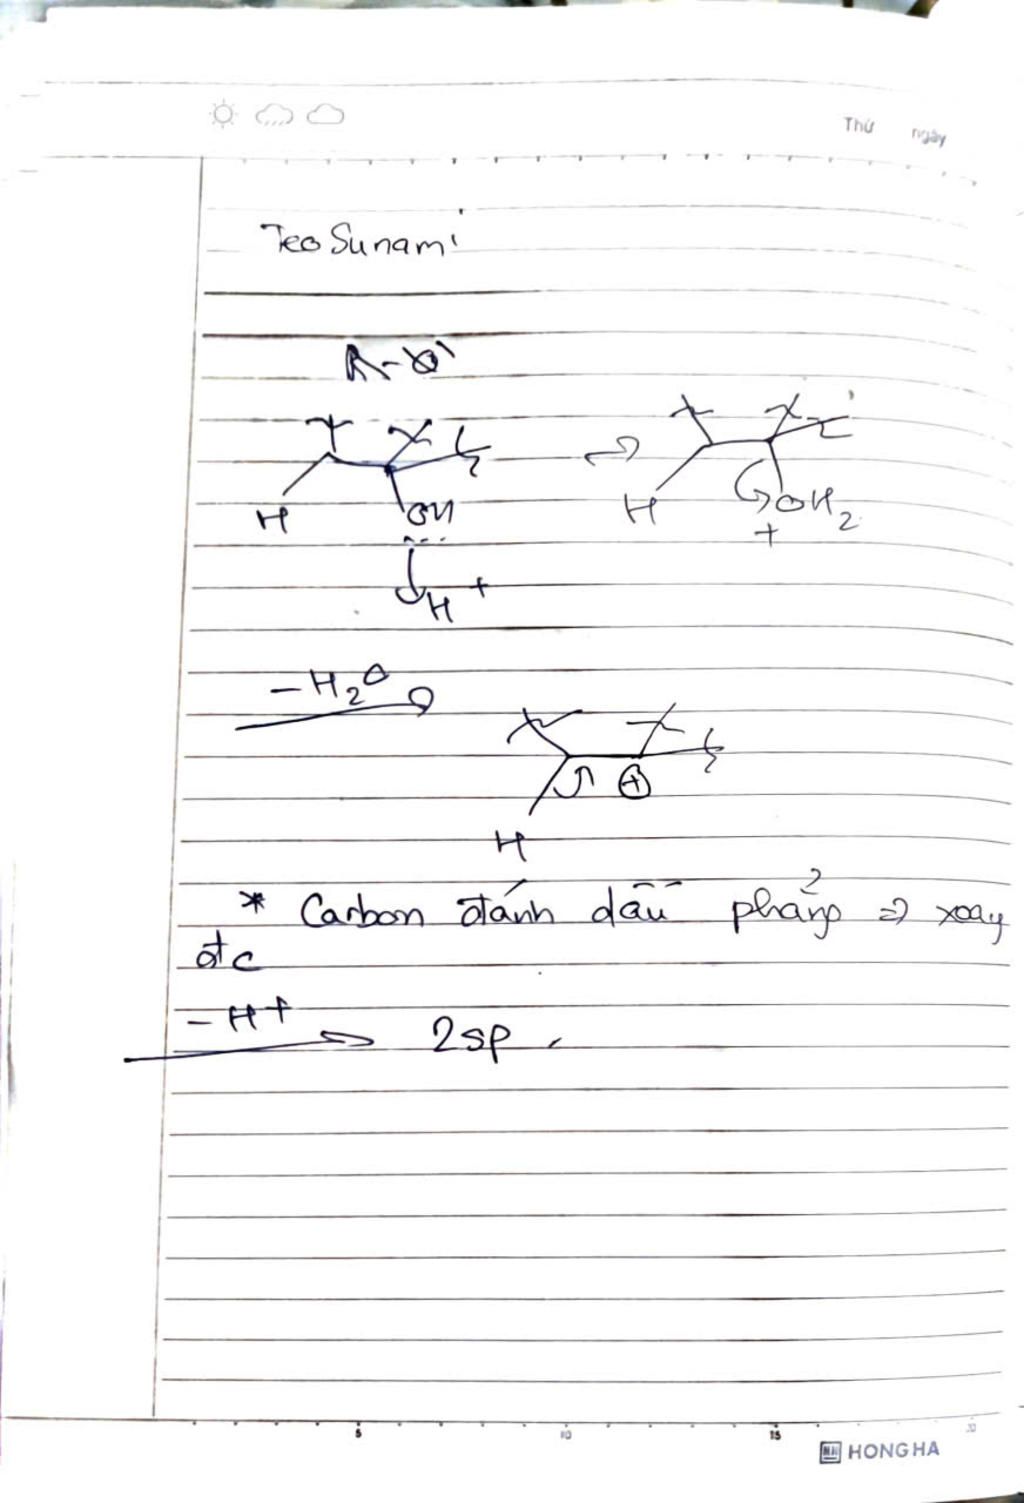 Thứ ngày
Teo Sunami
H OH
H OH2
+
H +
- H2O
+
H
* Carbon đánh dấu phẳng => xoay
đc
- H+
2sp
5 10 15 20
HONG HA